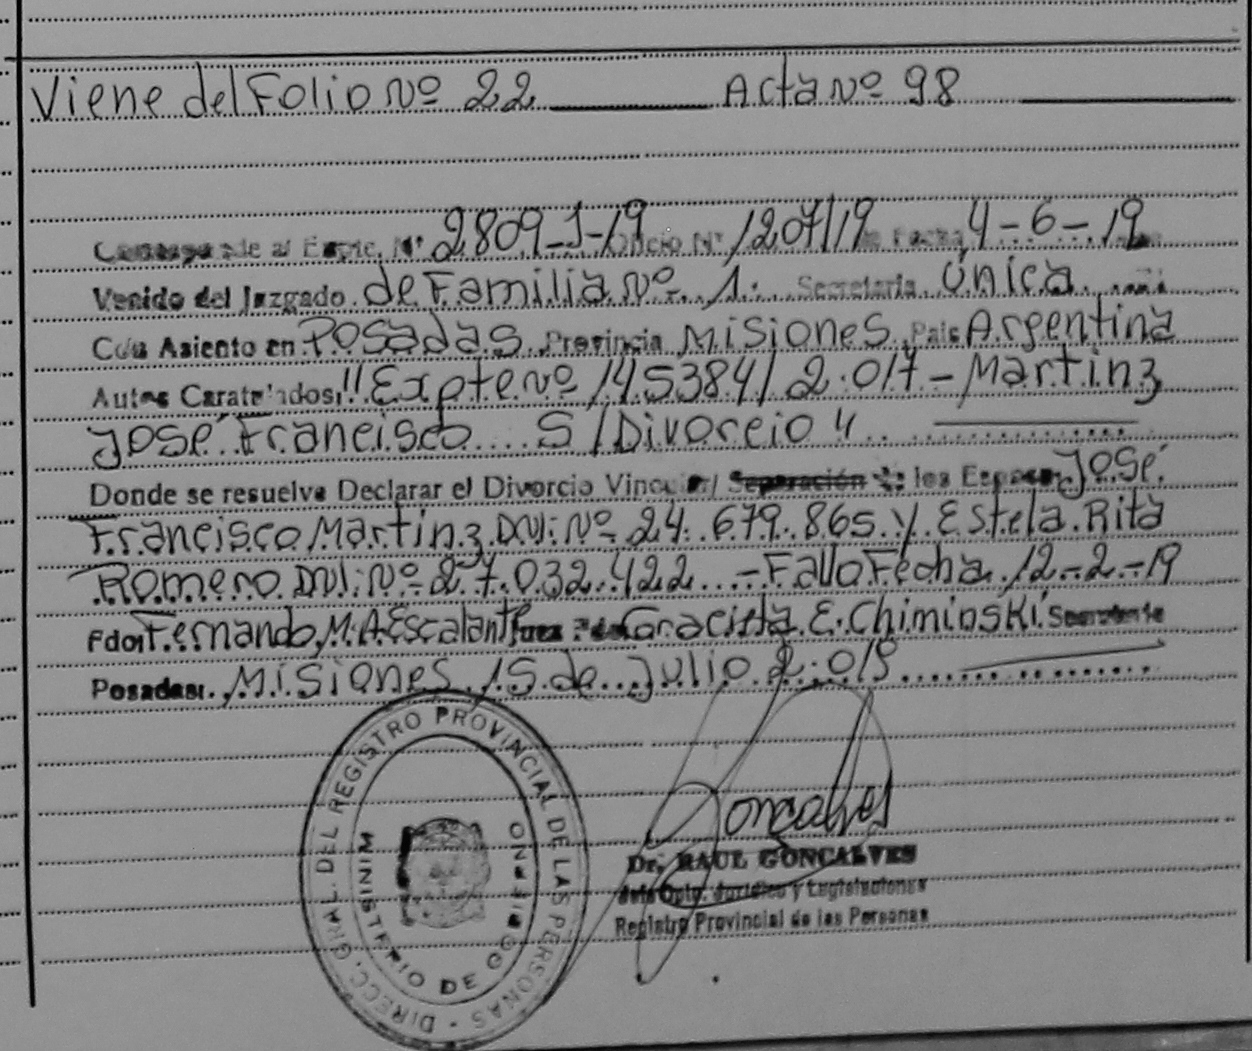 Viene del Folio Nº 22 ______ Acta Nº 98 ______
Corresponde al Expte. Nº 2809-J-19 Oficio Nº 1207/19 de Fecha 4-6-19
Venido del Juzgado de Familia Nº 1. Secretaria Única
Con Asiento en Posadas Provincia Misiones País Argentina
Autos Caratulados, "Expte Nº 145384/2.017 - Martinz
José Francisco S/Divorcio"
Donde se resuelve Declarar el Divorcio Vincular/ Separación de los Esposos José
Francisco Martinz DNI: Nº 24.679.865 y Estela Rita
Romero DNI: Nº 27.032.422 - Fallo Fecha 12-2-19
Fdo: Fernando, M.A. Escalante Juez Fdo: Graciela E. Chiminski Secretaria
Posadas: Misiones 15 de Julio 2.019
DIRECC. GRAL. DEL REGISTRO PROVINCIAL DE LAS PERSONAS -
MINISTERIO DE GOBIERNO
Goncalves
Dr. RAUL GONCALVES
Jefe Dpto. Jurídico y Legislaciones
Registro Provincial de las Personas